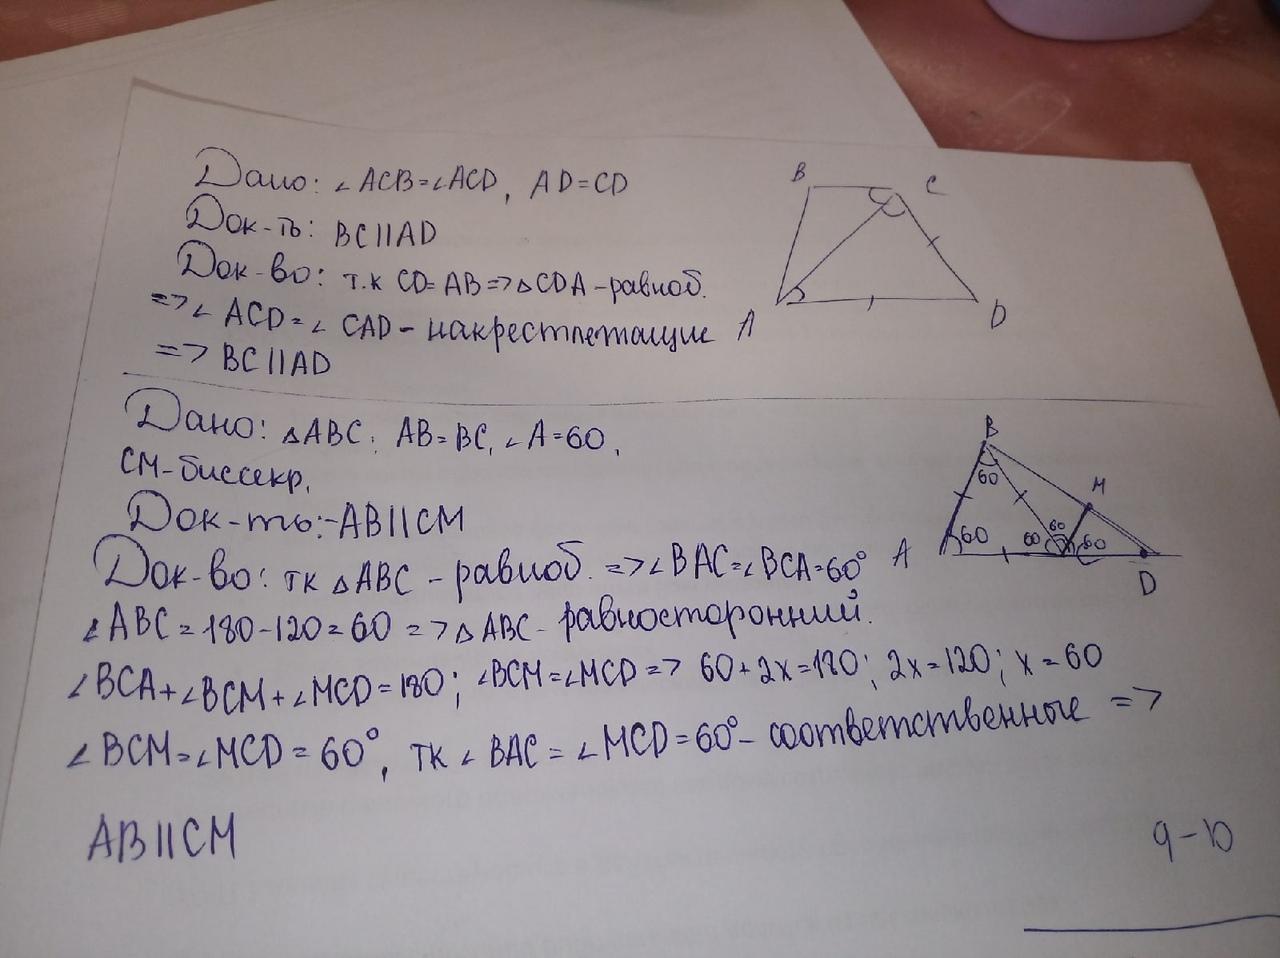 Дано: ∠ ACB=∠ACD, AD=CD
Док-ть: BC||AD
Док-во: т.к CD=AB=>△CDA-равноб.
=>∠ ACD=∠ CAD-накрестлежащие
=> BC||AD
B
C
A
D
Дано: △ABC, AB=BC, ∠A=60,
CM-биссекр,
Док-ть:-AB||CM
Док-во: тк △ABC - равноб. =>∠BAC=∠BCA=60°
∠ABC=180-120=60 =>△ABC- равносторонний.
∠BCA+∠BCM+∠MCD=180; ∠BCM=∠MCD=> 60+2x=180; 2x=120; x=60
∠BCM=∠MCD=60°, тк ∠BAC=∠MCD=60°- соответственные =>
AB||CM
B
60
M
A
60
60
60
60
D
9-10